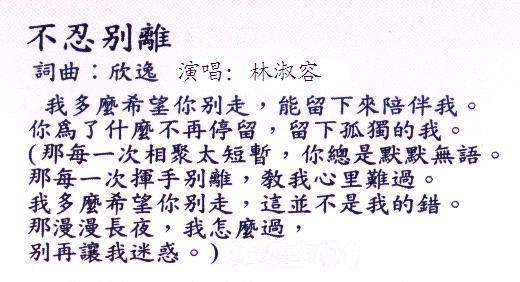 不忍別離
詞曲：欣逸 演唱: 林淑容
我多麼希望你別走，能留下來陪伴我。
你為了什麼不再停留，留下孤獨的我。
(那每一次相聚太短暫，你總是默默無語。
那每一次揮手別離，教我心里難過。
我多麼希望你別走，這並不是我的錯。
那漫漫長夜，我怎麼過，
別再讓我迷惑。)